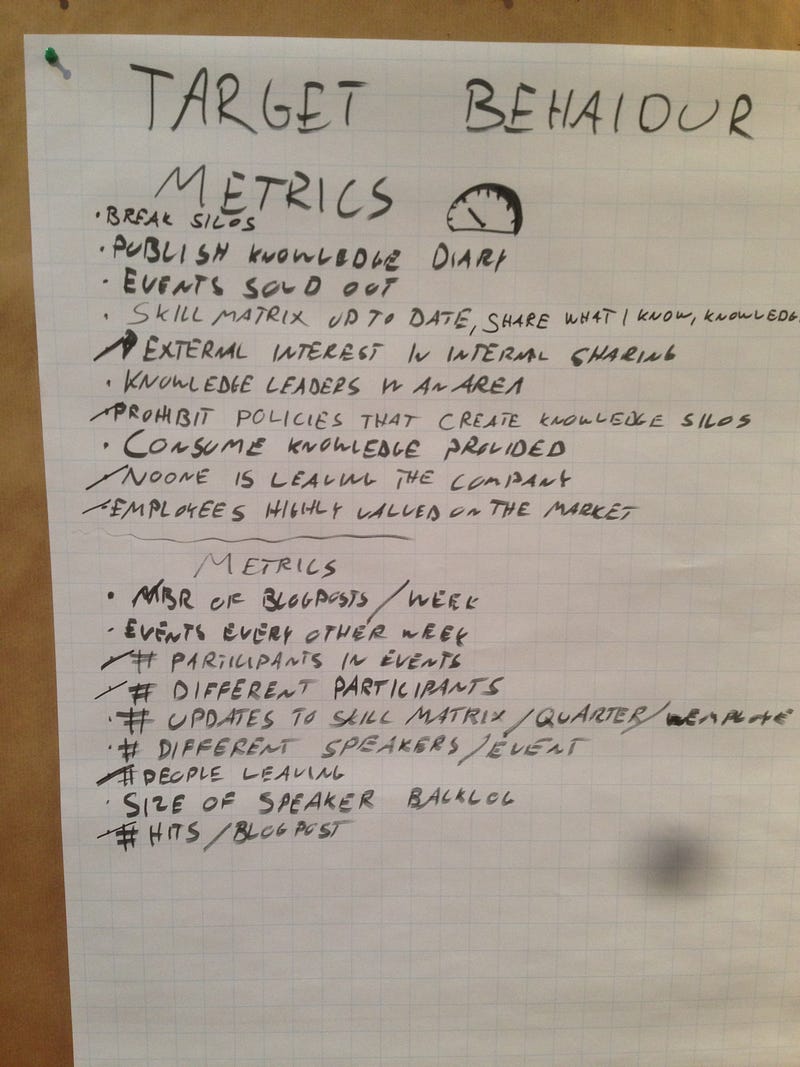 TARGET BEHAIOUR
METRICS
· BREAK SILOS
· PUBLISH KNOWLEDGE DIARY
· EVENTS SOLD OUT
· SKILL MATRIX UP TO DATE, SHARE WHAT I KNOW, KNOWLEDG
EXTERNAL INTEREST IN INTERNAL SHARING
· KNOWLEDGE LEADERS IN AN AREA
PROHIBIT POLICIES THAT CREATE KNOWLEDGE SILOS
· CONSUME KNOWLEDGE PROVIDED
NOONE IS LEAVING THE COMPANY
EMPLOYEES HIGHLY VALUED ON THE MARKET
METRICS
· NBR OF BLOGPOSTS/WEEK
· EVENTS EVERY OTHER WEEK
# PARTICIPANTS IN EVENTS
# DIFFERENT PARTICIPANTS
· # UPDATES TO SKILL MATRIX/QUARTER/
· # DIFFERENT SPEAKERS/EVENT
# PEOPLE LEAVING
· SIZE OF SPEAKER BACKLOG
# HITS/BLOGPOST